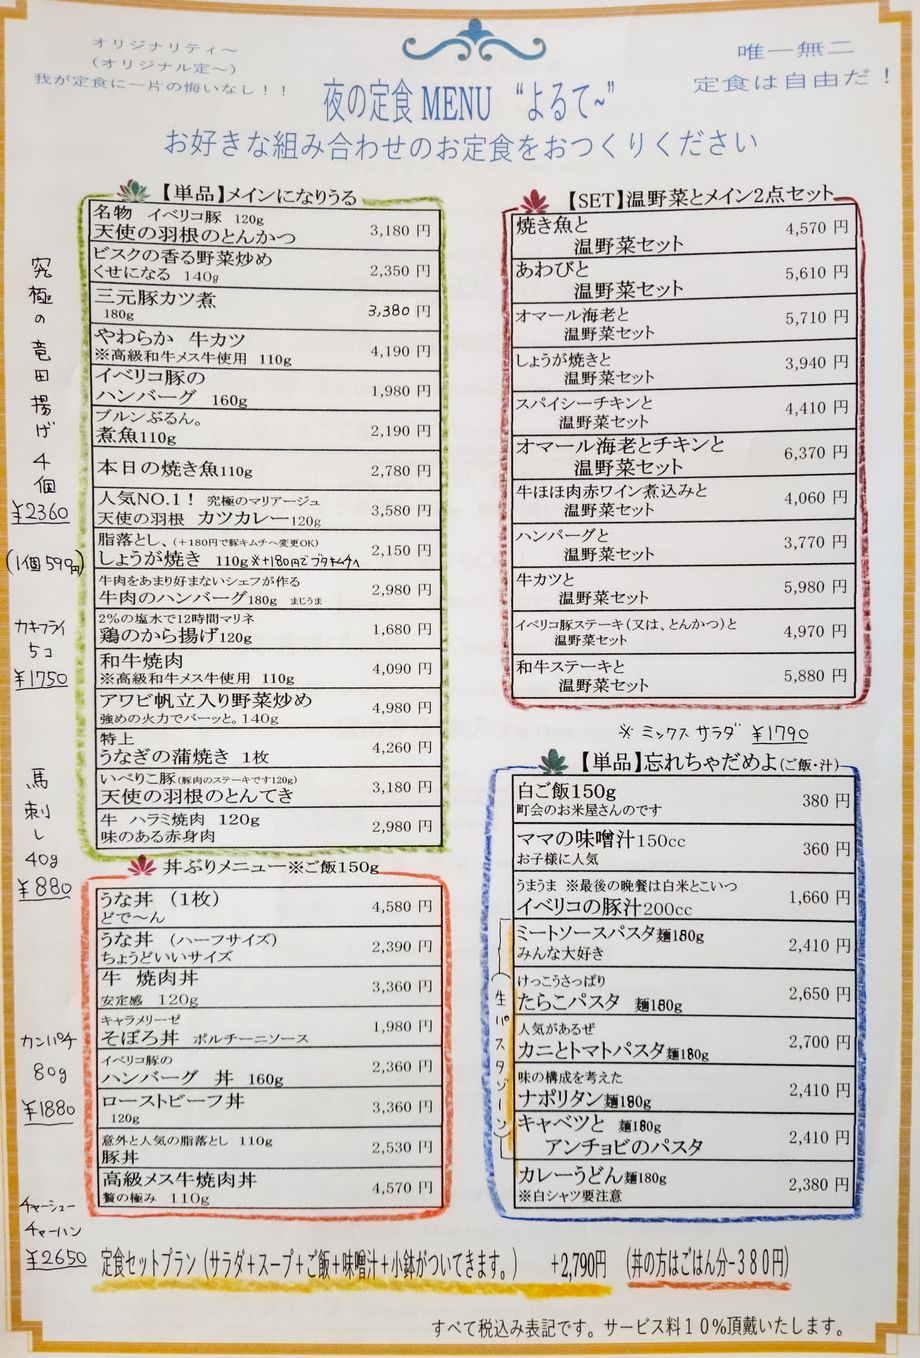 オリジナリティ～
(オリジナル定～)
我が定食に一片の悔いなし！！
唯一無二
定食は自由だ！
夜の定食 MENU “よるて~”
お好きな組み合わせのお定食をおつくりください
【単品】メインになりうる
名物 イベリコ豚 120g
天使の羽根のとんかつ 3,180 円
ビスクの香る野菜炒め
くせになる 140g 2,350 円
三元豚カツ煮
180g 3,380 円
やわらか 牛カツ
※高級和牛メス牛使用 110g 4,190 円
イベリコ豚の
ハンバーグ 160g 1,980 円
ブルンぶるん。
煮魚110g 2,190 円
本日の焼き魚110g 2,780 円
人気NO.1！ 究極のマリアージュ
天使の羽根 カツカレー120g 3,580 円
脂落とし、(+180円で豚キムチへ変更OK)
しょうが焼き 110g ※+180円でブタキムチへ 2,150 円
牛肉をあまり好まないシェフが作る
牛肉のハンバーグ180g まじうま 2,980 円
2%の塩水で12時間マリネ
鶏のから揚げ120g 1,680 円
和牛焼肉
※高級和牛メス牛使用 110g 4,090 円
アワビ帆立入り野菜炒め
強めの火力でバーッと。140g 4,980 円
特上
うなぎの蒲焼き 1枚 4,260 円
いべりこ豚(豚肉のステーキです120g)
天使の羽根のとんてき 3,180 円
牛 ハラミ焼肉 120g
味のある赤身肉 2,980 円
丼ぶりメニュー※ご飯150g
うな丼 (1枚)
どで～ん 4,580 円
うな丼 (ハーフサイズ)
ちょうどいいサイズ 2,390 円
牛 焼肉丼
安定感 120g 3,360 円
キャラメリーゼ
そぼろ丼 ポルチーニソース 1,980 円
イベリコ豚の
ハンバーグ 丼 160g 2,360 円
ローストビーフ丼
120g 3,360 円
意外と人気の脂落とし 110g
豚丼 2,530 円
高級メス牛焼肉丼
贅の極み 110g 4,570 円
究極の竜田揚げ4個
¥2360
(1個590円)
カキフライ
5コ
¥1750
馬刺し
40g
¥880
カンパチ
80g
¥1880
チャーシュー
チャーハン
¥2650
【SET】温野菜とメイン2点セット
焼き魚と
温野菜セット 4,570 円
あわびと
温野菜セット 5,610 円
オマール海老と
温野菜セット 5,710 円
しょうが焼きと
温野菜セット 3,940 円
スパイシーチキンと
温野菜セット 4,410 円
オマール海老とチキンと
温野菜セット 6,370 円
牛ほほ肉赤ワイン煮込みと
温野菜セット 4,060 円
ハンバーグと
温野菜セット 3,770 円
牛カツと
温野菜セット 5,980 円
イベリコ豚ステーキ(又は、とんかつ)と
温野菜セット 4,970 円
和牛ステーキと
温野菜セット 5,880 円
※ミックスサラダ ¥1790
【単品】忘れちゃだめよ(ご飯・汁)
白ご飯150g
町会のお米屋さんのです 380 円
ママの味噌汁150cc
お子様に人気 360 円
うまうま ※最後の晩餐は白米とこいつ
イベリコの豚汁200cc 1,660 円
生パスタゾーン
ミートソースパスタ麺180g
みんな大好き 2,410 円
けっこうさっぱり
たらこパスタ 麺180g 2,650 円
人気があるぜ
カニとトマトパスタ麺180g 2,700 円
味の構成を考えた
ナポリタン麺180g 2,410 円
キャベツと 麺180g
アンチョビのパスタ 2,410 円
カレーうどん麺180g
※白シャツ要注意 2,380 円
定食セットプラン (サラダ+スープ+ご飯+味噌汁+小鉢がついてきます。) +2,790円 (丼の方はごはん分-380円)
すべて税込み表記です。サービス料10%頂戴いたします。